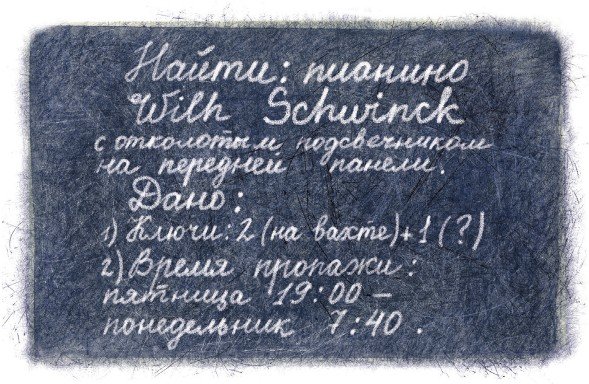 Найти: пианино
Wilh Schwinck
с отколотым подсвечником
на передней панели.
Дано:
1) Ключи: 2 (на вахте) + 1 (?)
2) Время пропажи:
пятница 19:00 —
понедельник 7:40.